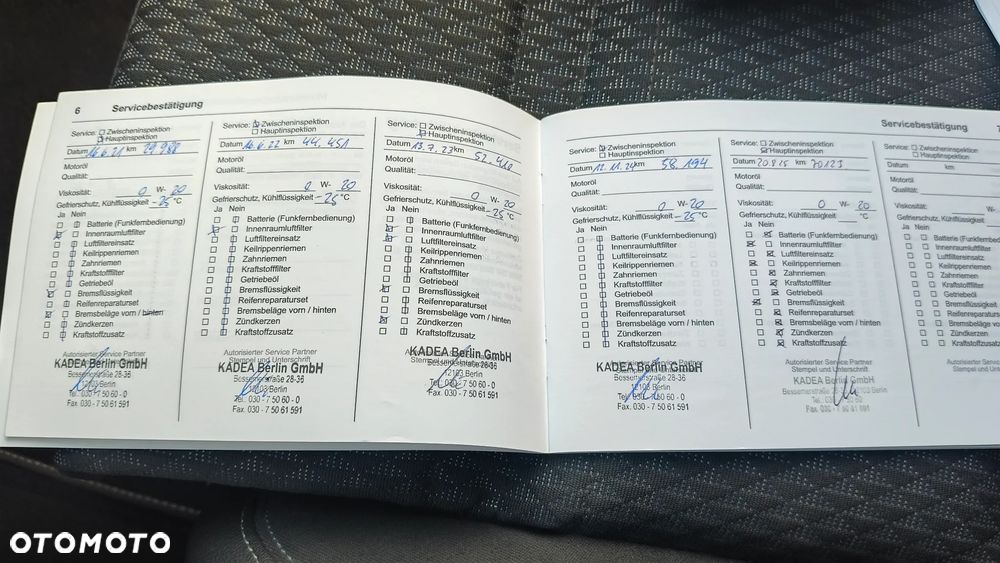 6 Servicebestätigung
Service: Zwischeninspektion
Hauptinspektion
Datum 16.6.21 km 29.988
Motoröl
Qualität:
Viskosität: 0 W- 20
Gefrierschutz, Kühlflüssigkeit -25 °C
Ja Nein
Batterie (Funkfernbedienung)
Innenraumluftfilter
Luftfiltereinsatz
Keilrippenriemen
Zahnriemen
Kraftstofffilter
Getriebeöl
Bremsflüssigkeit
Reifenreparaturset
Bremsbeläge vorn / hinten
Zündkerzen
Kraftstoffzusatz
Autorisierter Service Partner
Stempel und Unterschrift
KADEA Berlin GmbH
Bessemerstraße 28-36
12103 Berlin
Tel. 030 - 7 50 60 - 0
Fax. 030 - 7 50 61 591
Service: Zwischeninspektion
Hauptinspektion
Datum 16.6.22 km 44.451
Motoröl
Qualität:
Viskosität: 0 W- 20
Gefrierschutz, Kühlflüssigkeit -25 °C
Ja Nein
Batterie (Funkfernbedienung)
Innenraumluftfilter
Luftfiltereinsatz
Keilrippenriemen
Zahnriemen
Kraftstofffilter
Getriebeöl
Bremsflüssigkeit
Reifenreparaturset
Bremsbeläge vorn / hinten
Zündkerzen
Kraftstoffzusatz
Autorisierter Service Partner
Stempel und Unterschrift
KADEA Berlin GmbH
Bessemerstraße 28-36
12103 Berlin
Tel. 030 - 7 50 60 - 0
Fax. 030 - 7 50 61 591
Service: Zwischeninspektion
Hauptinspektion
Datum 13.7.23 km 52.410
Motoröl
Qualität:
Viskosität: 0 W- 20
Gefrierschutz, Kühlflüssigkeit -25 °C
Ja Nein
Batterie (Funkfernbedienung)
Innenraumluftfilter
Luftfiltereinsatz
Keilrippenriemen
Zahnriemen
Kraftstofffilter
Getriebeöl
Bremsflüssigkeit
Reifenreparaturset
Bremsbeläge vorn / hinten
Zündkerzen
Kraftstoffzusatz
KADEA Berlin GmbH
Bessemerstraße 28-36
12103 Berlin
Tel. 030 - 7 50 60 - 0
Fax. 030 - 7 50 61 591
Servicebestätigung
Service: Zwischeninspektion
Hauptinspektion
Datum 12.11.24 km 58.194
Motoröl
Qualität:
Viskosität: 0 W- 20
Gefrierschutz, Kühlflüssigkeit -25 °C
Ja Nein
Batterie (Funkfernbedienung)
Innenraumluftfilter
Luftfiltereinsatz
Keilrippenriemen
Zahnriemen
Kraftstofffilter
Getriebeöl
Bremsflüssigkeit
Reifenreparaturset
Bremsbeläge vorn / hinten
Zündkerzen
Kraftstoffzusatz
Autorisierter Service Partner
Stempel und Unterschrift
KADEA Berlin GmbH
Bessemerstraße 28-36
12103 Berlin
Tel. 030 - 7 50 60 - 0
Fax. 030 - 7 50 61 591
Service: Zwischeninspektion
Hauptinspektion
Datum km 70123
Motoröl
Qualität:
Viskosität: 0 W- 20
Gefrierschutz, Kühlflüssigkeit °C
Ja Nein
Batterie (Funkfernbedienung)
Innenraumluftfilter
Luftfiltereinsatz
Keilrippenriemen
Zahnriemen
Kraftstofffilter
Getriebeöl
Bremsflüssigkeit
Reifenreparaturset
Bremsbeläge vorn / hinten
Zündkerzen
Kraftstoffzusatz
Autorisierter Service Partner
Stempel und Unterschrift
KADEA Berlin GmbH
Bessemerstraße 28-36 12103 Berlin
Service: Zwischeninspektion
Hauptinspektion
Datum km
Motoröl
Qualität:
Viskosität:
Gefrierschutz, Kühlflüssigkeit
Ja Nein
Innenraumluftfilter
Luftfiltereinsatz
Keilrippenriemen
Zahnriemen
Kraftstofffilter
Getriebeöl
Bremsflüssigkeit
Zündkerzen
OTOMOTO